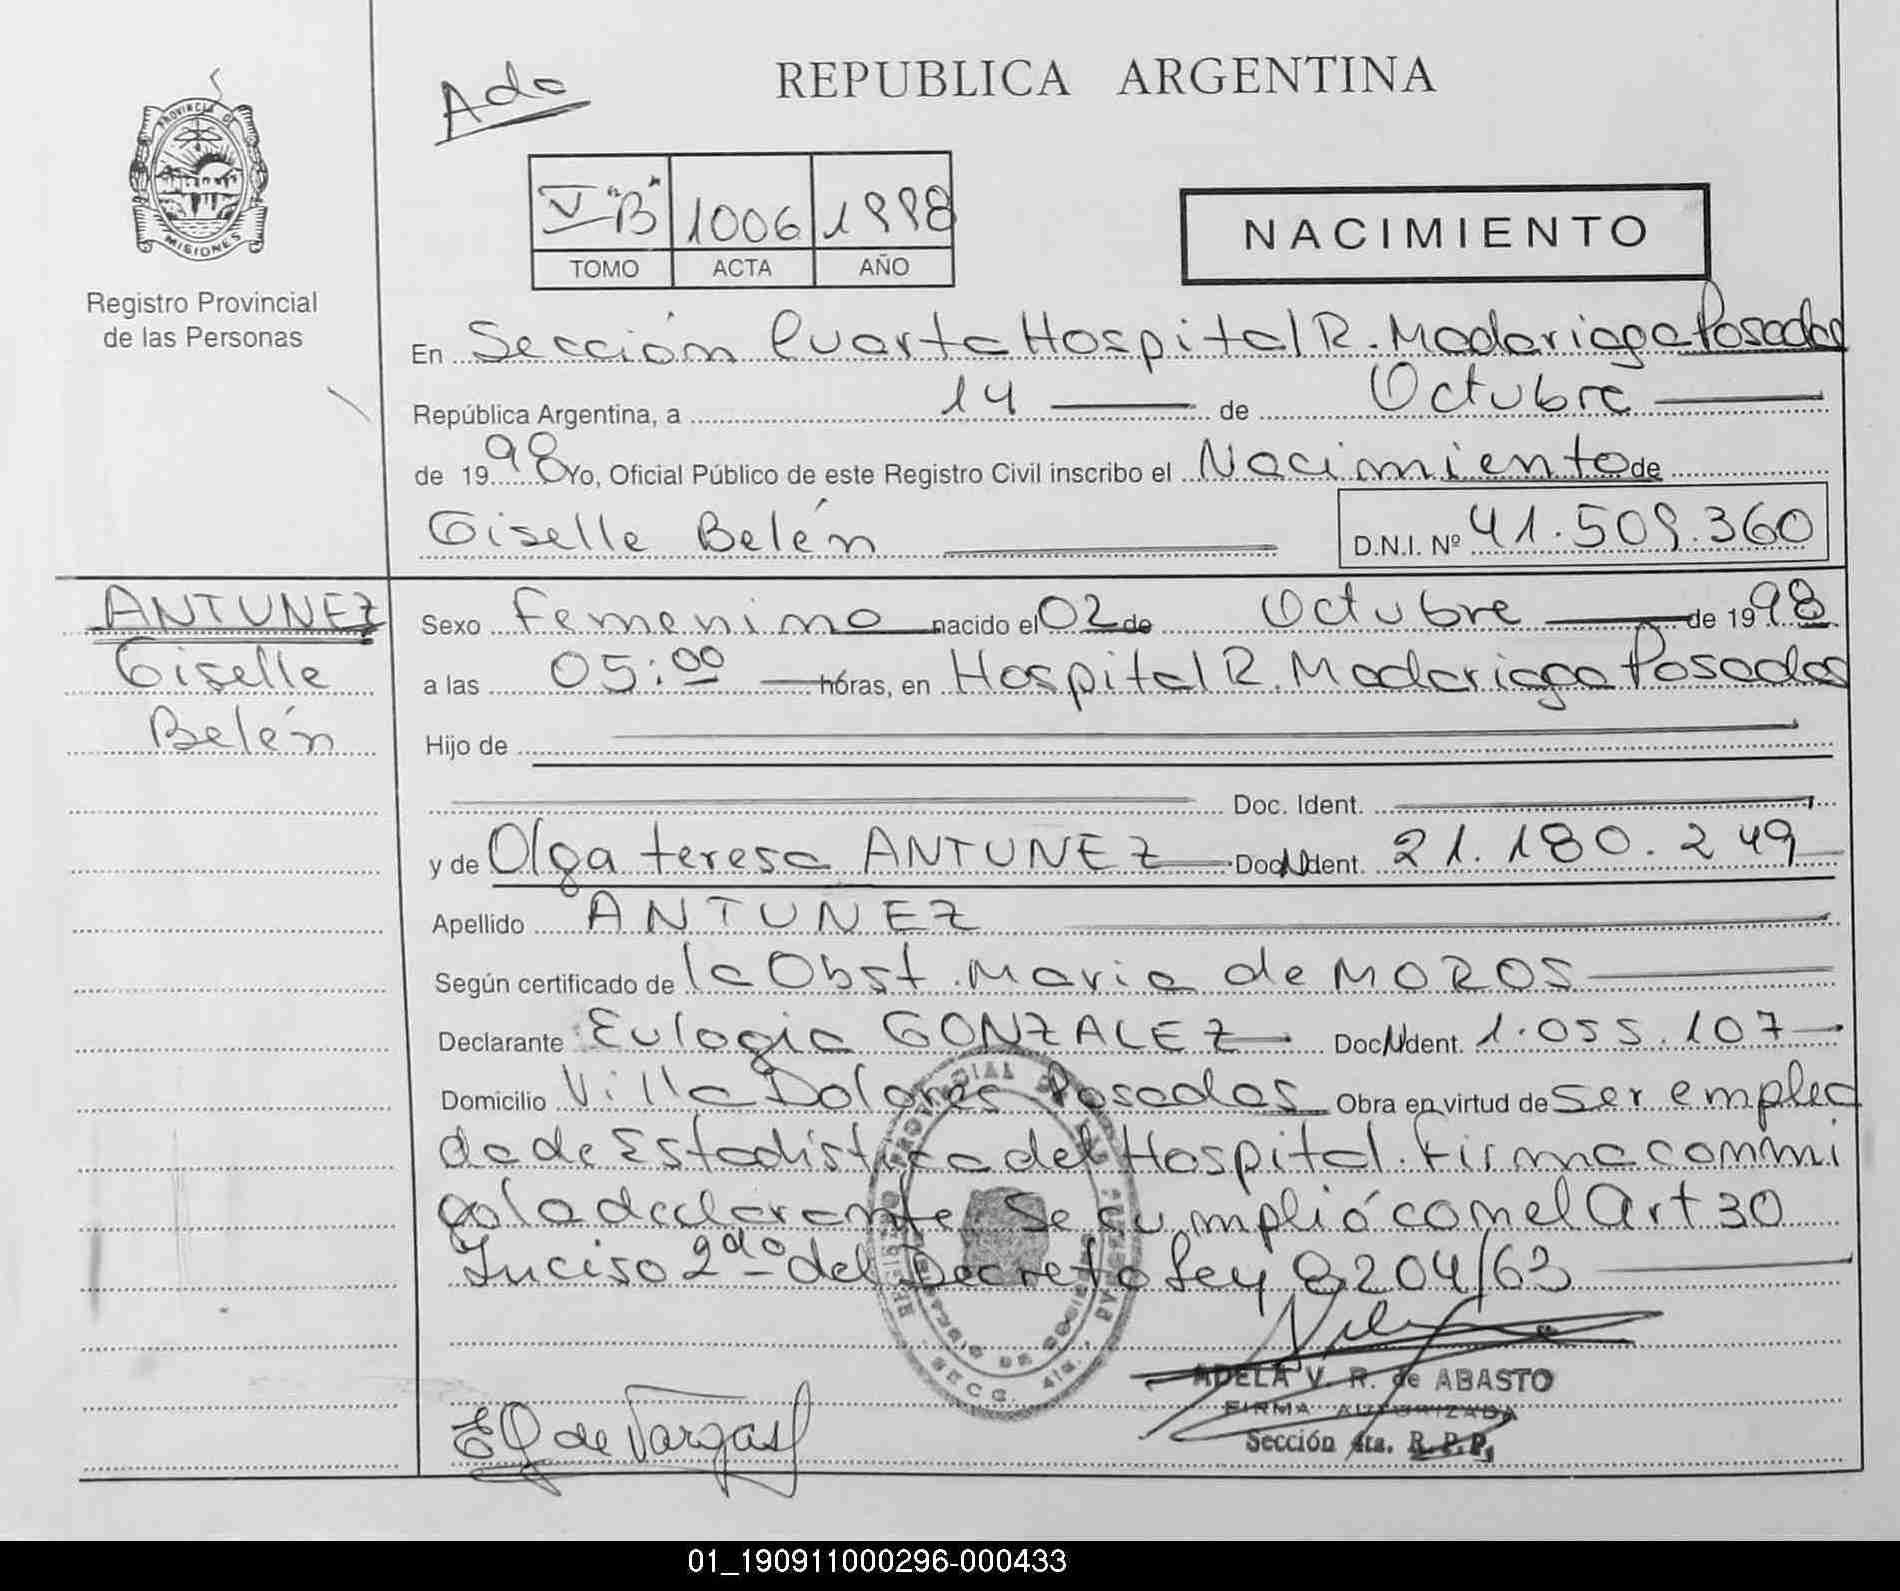 Ado
REPUBLICA ARGENTINA
PROVINCIA DE
MISIONES
Registro Provincial
de las Personas
V "B" 1006 1998
TOMO ACTA AÑO
NACIMIENTO
En Sección Cuarta Hospital R. Madariaga Posadas
República Argentina, a 14 de Octubre
de 1998 Yo, Oficial Público de este Registro Civil inscribo el Nacimiento de
Giselle Belén D.N.I. Nº 41.509.360
ANTUNEZ
Giselle
Belén
Sexo Femenino nacido el 02 de Octubre de 1998
a las 05:00 horas, en Hospital R. Madariaga Posadas
Hijo de
Doc. Ident.
y de Olga teresa ANTUNEZ Doc. Ident. 21.180.249
Apellido ANTUNEZ
Según certificado de la Obst. Maria de MOROS
Declarante Eulogia GONZALEZ Doc. Ident. 1.055.107
Domicilio Villa Dolores Posadas Obra en virtud de ser emplea
da de Estadistica del Hospital. Firma conmi
go la declarante. Se cumplió con el Art 30
Inciso 2do del Decreto Ley 8204/63
ADELA V. R. de ABASTO
FIRMA AUTORIZADA
Sección 4ta. R.P.P.
EG de Vargas
01_190911000296-000433